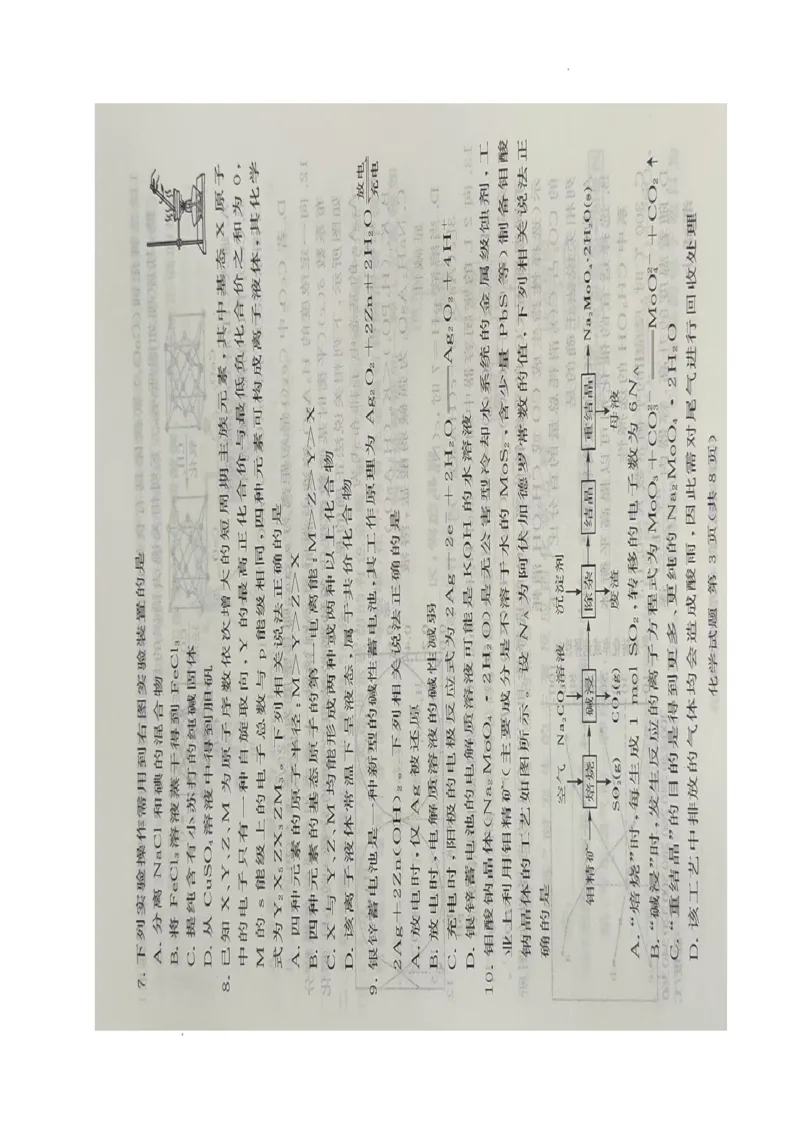 7. 下列实验操作需用到右图实验装置的是
A. 分离 NaCl 和碘的混合物
B. 将 FeCl₃ 溶液蒸干得到 FeCl₃
C. 提纯含有小苏打的纯碱固体
D. 从 CuSO₄ 溶液中得到胆矾
8. 已知 X、Y、Z、M 为原子序数依次增大的短周期主族元素,其中基态 X 原子
中的电子只有一种自旋取向,Y 的最高正化合价与最低负化合价之和为 0,
M 的 s 能级上的电子总数与 p 能级相同,四种元素可构成离子液体,其化学
式为 Y₂X₅ZX₃ZM₃。下列相关说法正确的是
A. 四种元素的原子半径:M>Y>Z>X
B. 四种元素的基态原子的第一电离能:M>Z>Y>X
C. X 与 Y、Z、M 均能形成两种或两种以上化合物
D. 该离子液体常温下呈液态,属于共价化合物
9. 银锌蓄电池是一种新型的碱性蓄电池,其工作原理为 Ag₂O₂+2Zn+2H₂O 放电 充电
2Ag+2Zn(OH)₂。下列相关说法正确的是
A. 放电时,仅 Ag 被还原
B. 放电时,电解质溶液的碱性减弱
C. 充电时,阳极的电极反应式为 2Ag−2e⁻+2H₂O══Ag₂O₂+4H⁺
D. 银锌蓄电池的电解质溶液可能是 KOH 的水溶液
10. 钼酸钠晶体(Na₂MoO₄·2H₂O)是无公害型冷却水系统的金属缓蚀剂,工
业上利用钼精矿(主要成分是不溶于水的 MoS₂,含少量 PbS 等)制备钼酸
钠晶体的工艺如图所示。设 Nₐ 为阿伏加德罗常数的值,下列相关说法正
确的是
空气 Na₂CO₃溶液 沉淀剂
钼精矿 焙烧 碱浸 除杂 结晶 重结晶 Na₂MoO₄·2H₂O(s)
SO₂(g) CO₂(g) 废渣 母液
A. “焙烧”时,每生成 1 mol SO₂,转移的电子数为 6Nₐ
B. “碱浸”时,发生反应的离子方程式为 MoO₃+CO₃²⁻══MoO₄²⁻+CO₂↑
C. “重结晶”的目的是得到更多、更纯的 Na₂MoO₄·2H₂O
D. 该工艺中排放的气体均会造成酸雨,因此需对尾气进行回收处理
化学试题 第 3 页(共 8 页)